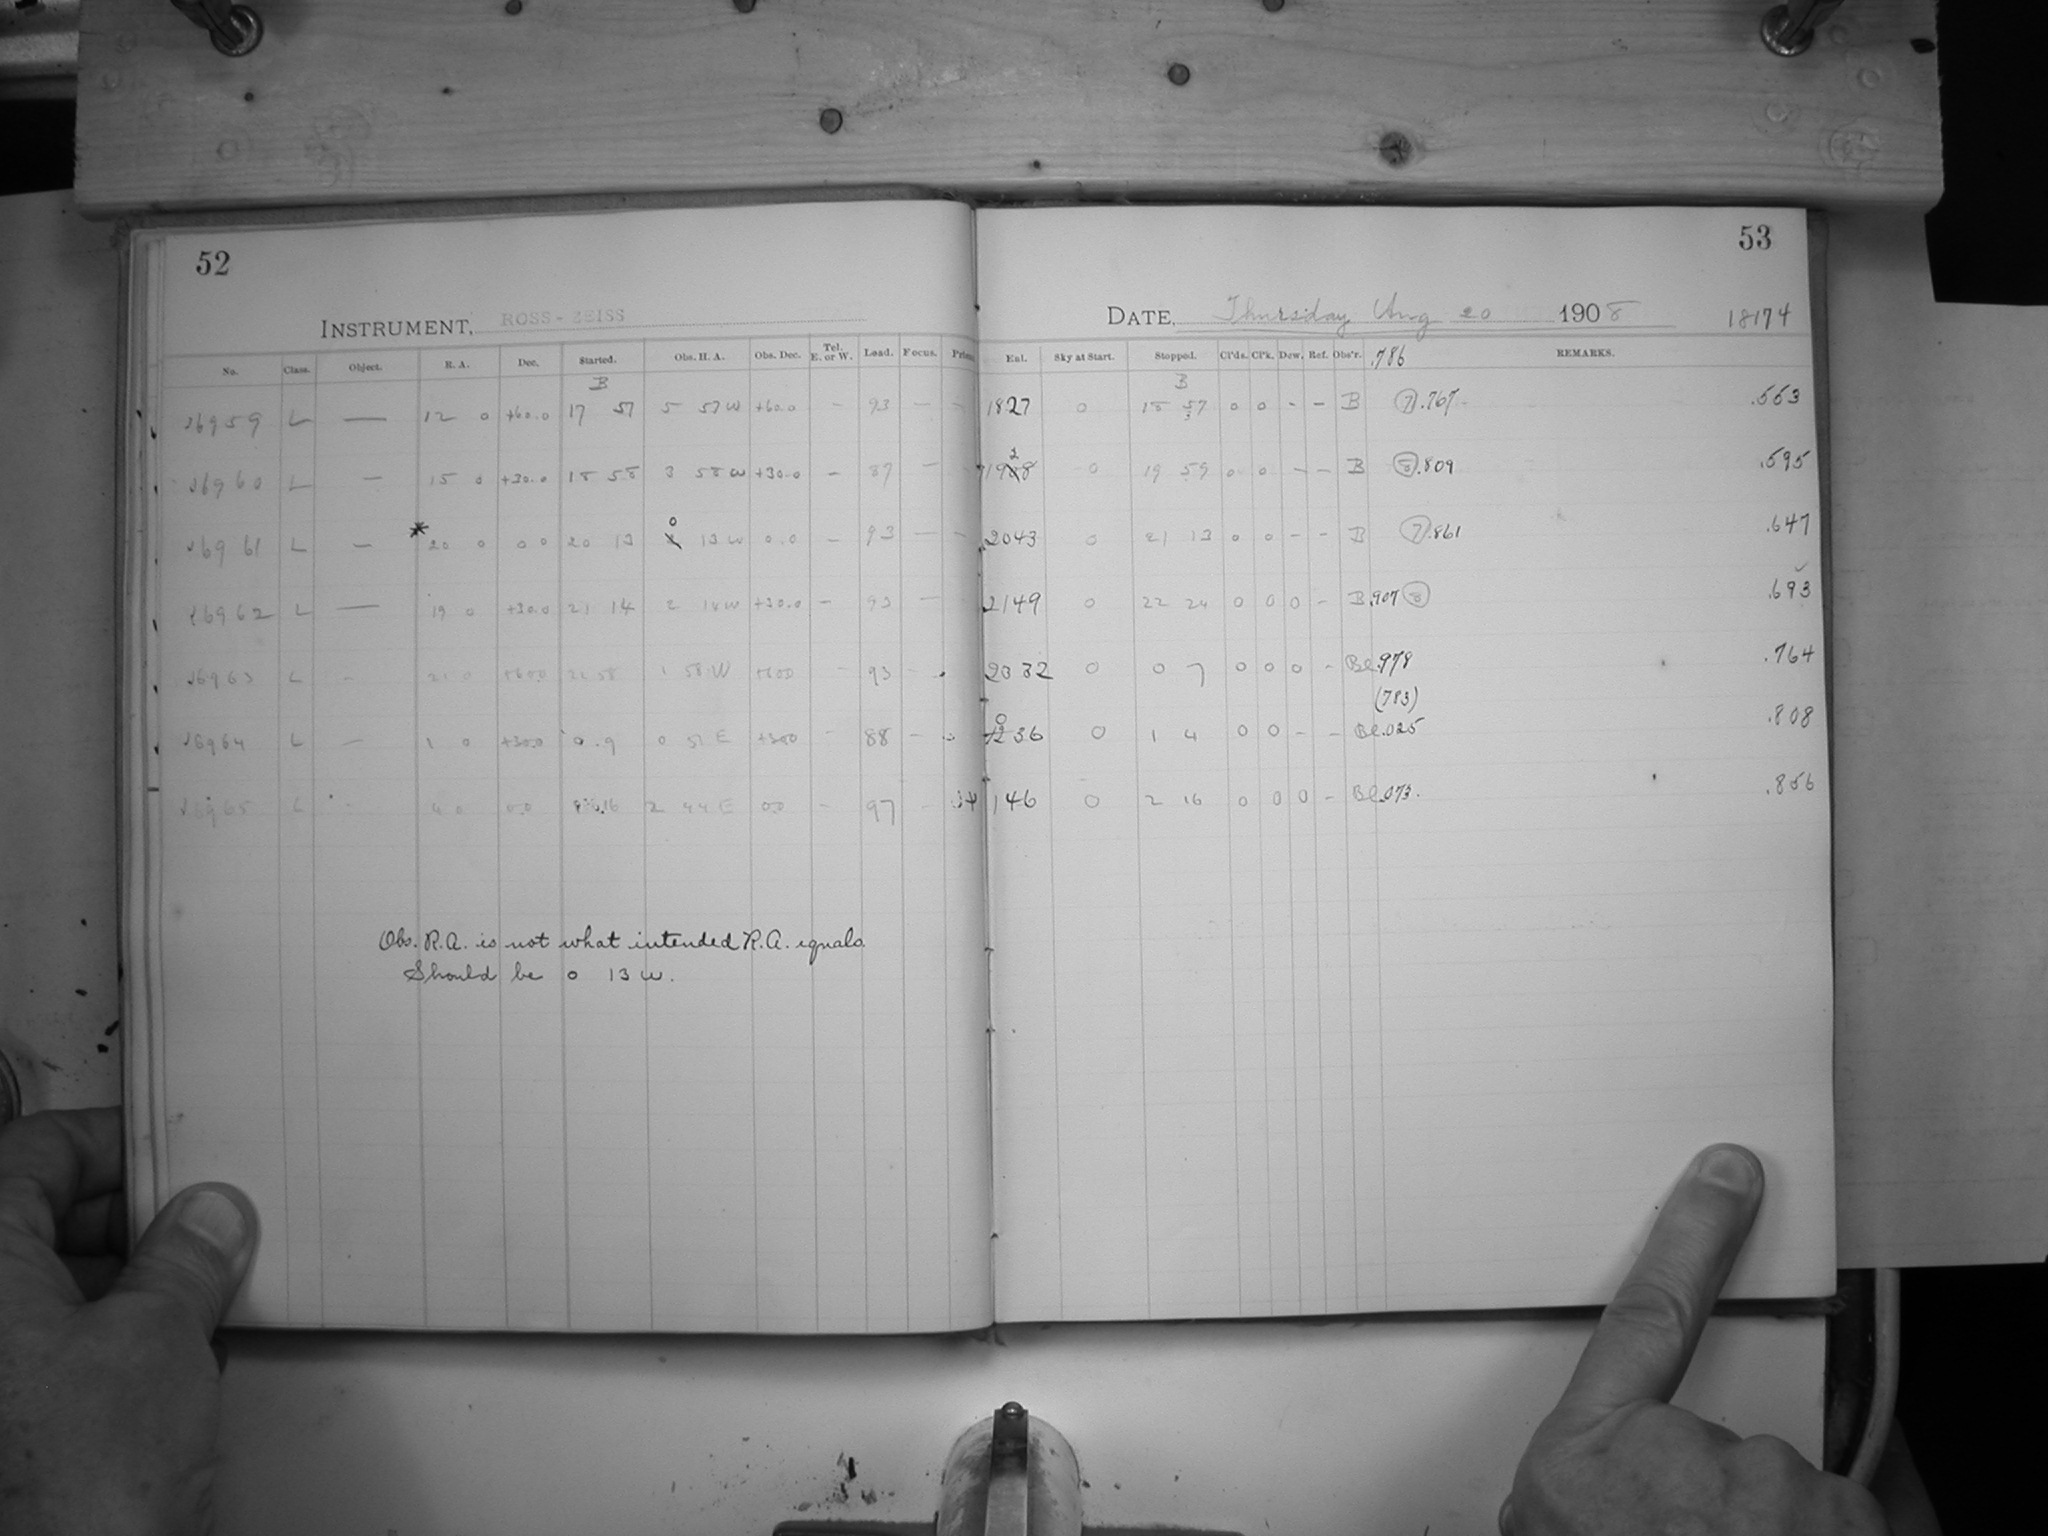 52
INSTRUMENT, ROSS-ZEISS
No. Class. Object. R. A. Dec. Started. Obs. H. A. Obs. Dec. Tel. E. or W. Load. Focus.
B
L — 12 0 +60.0 17 57 5 57 W +60.0 - 93 —
L — 15 0 +30.0 18 58 3 58 W +30.0 - 87 —
L — * 20 0 0 0 20 13 0 13 W 0.0 - 93 —
L — 19 0 +30.0 21 14 2 14 W +30.0 - 93 —
L - 93 -
L — 1 0 +30.0 0 9 0 51 E +300 - 88 -
L - 4 0 0.0 2 44 E 00 - 97 -
Obs. R.A. is not what intended R.A. equals.
Should be 0 13 W.
53
DATE, Thursday Aug 20 1908 18174
Eal. Sky at Start. Stopped. Cl'ds. Cl'k. Dew. Ref. Obs'r. .786 REMARKS.
B
1827 0 18 57 0 0 - - B (7) .767 .553
0 19 59 0 0 - - B (8) .809 .595
2043 0 21 13 0 0 - - B (7) .861 .647
2149 0 22 24 0 0 0 - B .907 (8) .693
2332 0 0 7 0 0 0 - Be .978 .764
(783)
0 1 4 0 0 - - Be .025 .808
146 0 2 16 0 0 0 - Be .073. .856